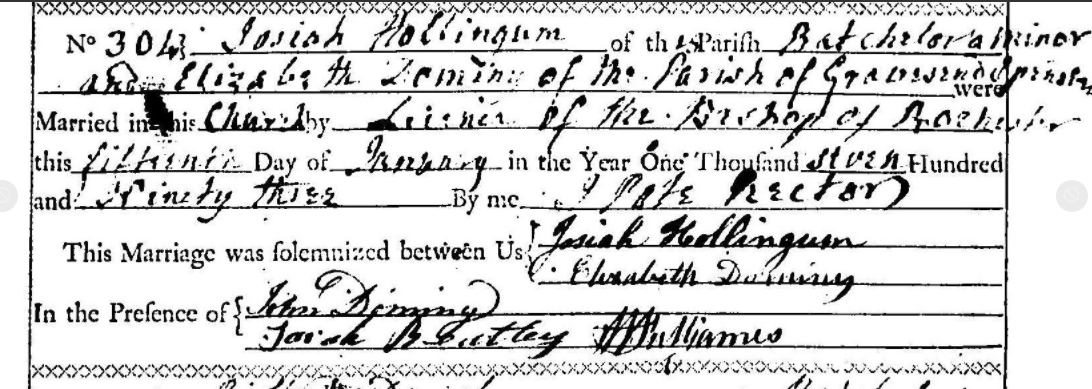 No 304 Josiah Hollingum of this Parish Batchelor a minor
and Elizabeth Dominy of the Parish of Gravesend Spinster were
Married in this Church by Licence of the Bishop of Rochester
this fifteenth Day of January in the Year One Thousand seven Hundred
and Ninety three By me J Pote Rector
This Marriage was solemnized between Us { Josiah Hollingum
Elizabeth Dominy
In the Presence of { John Dominy
Josiah Beutley